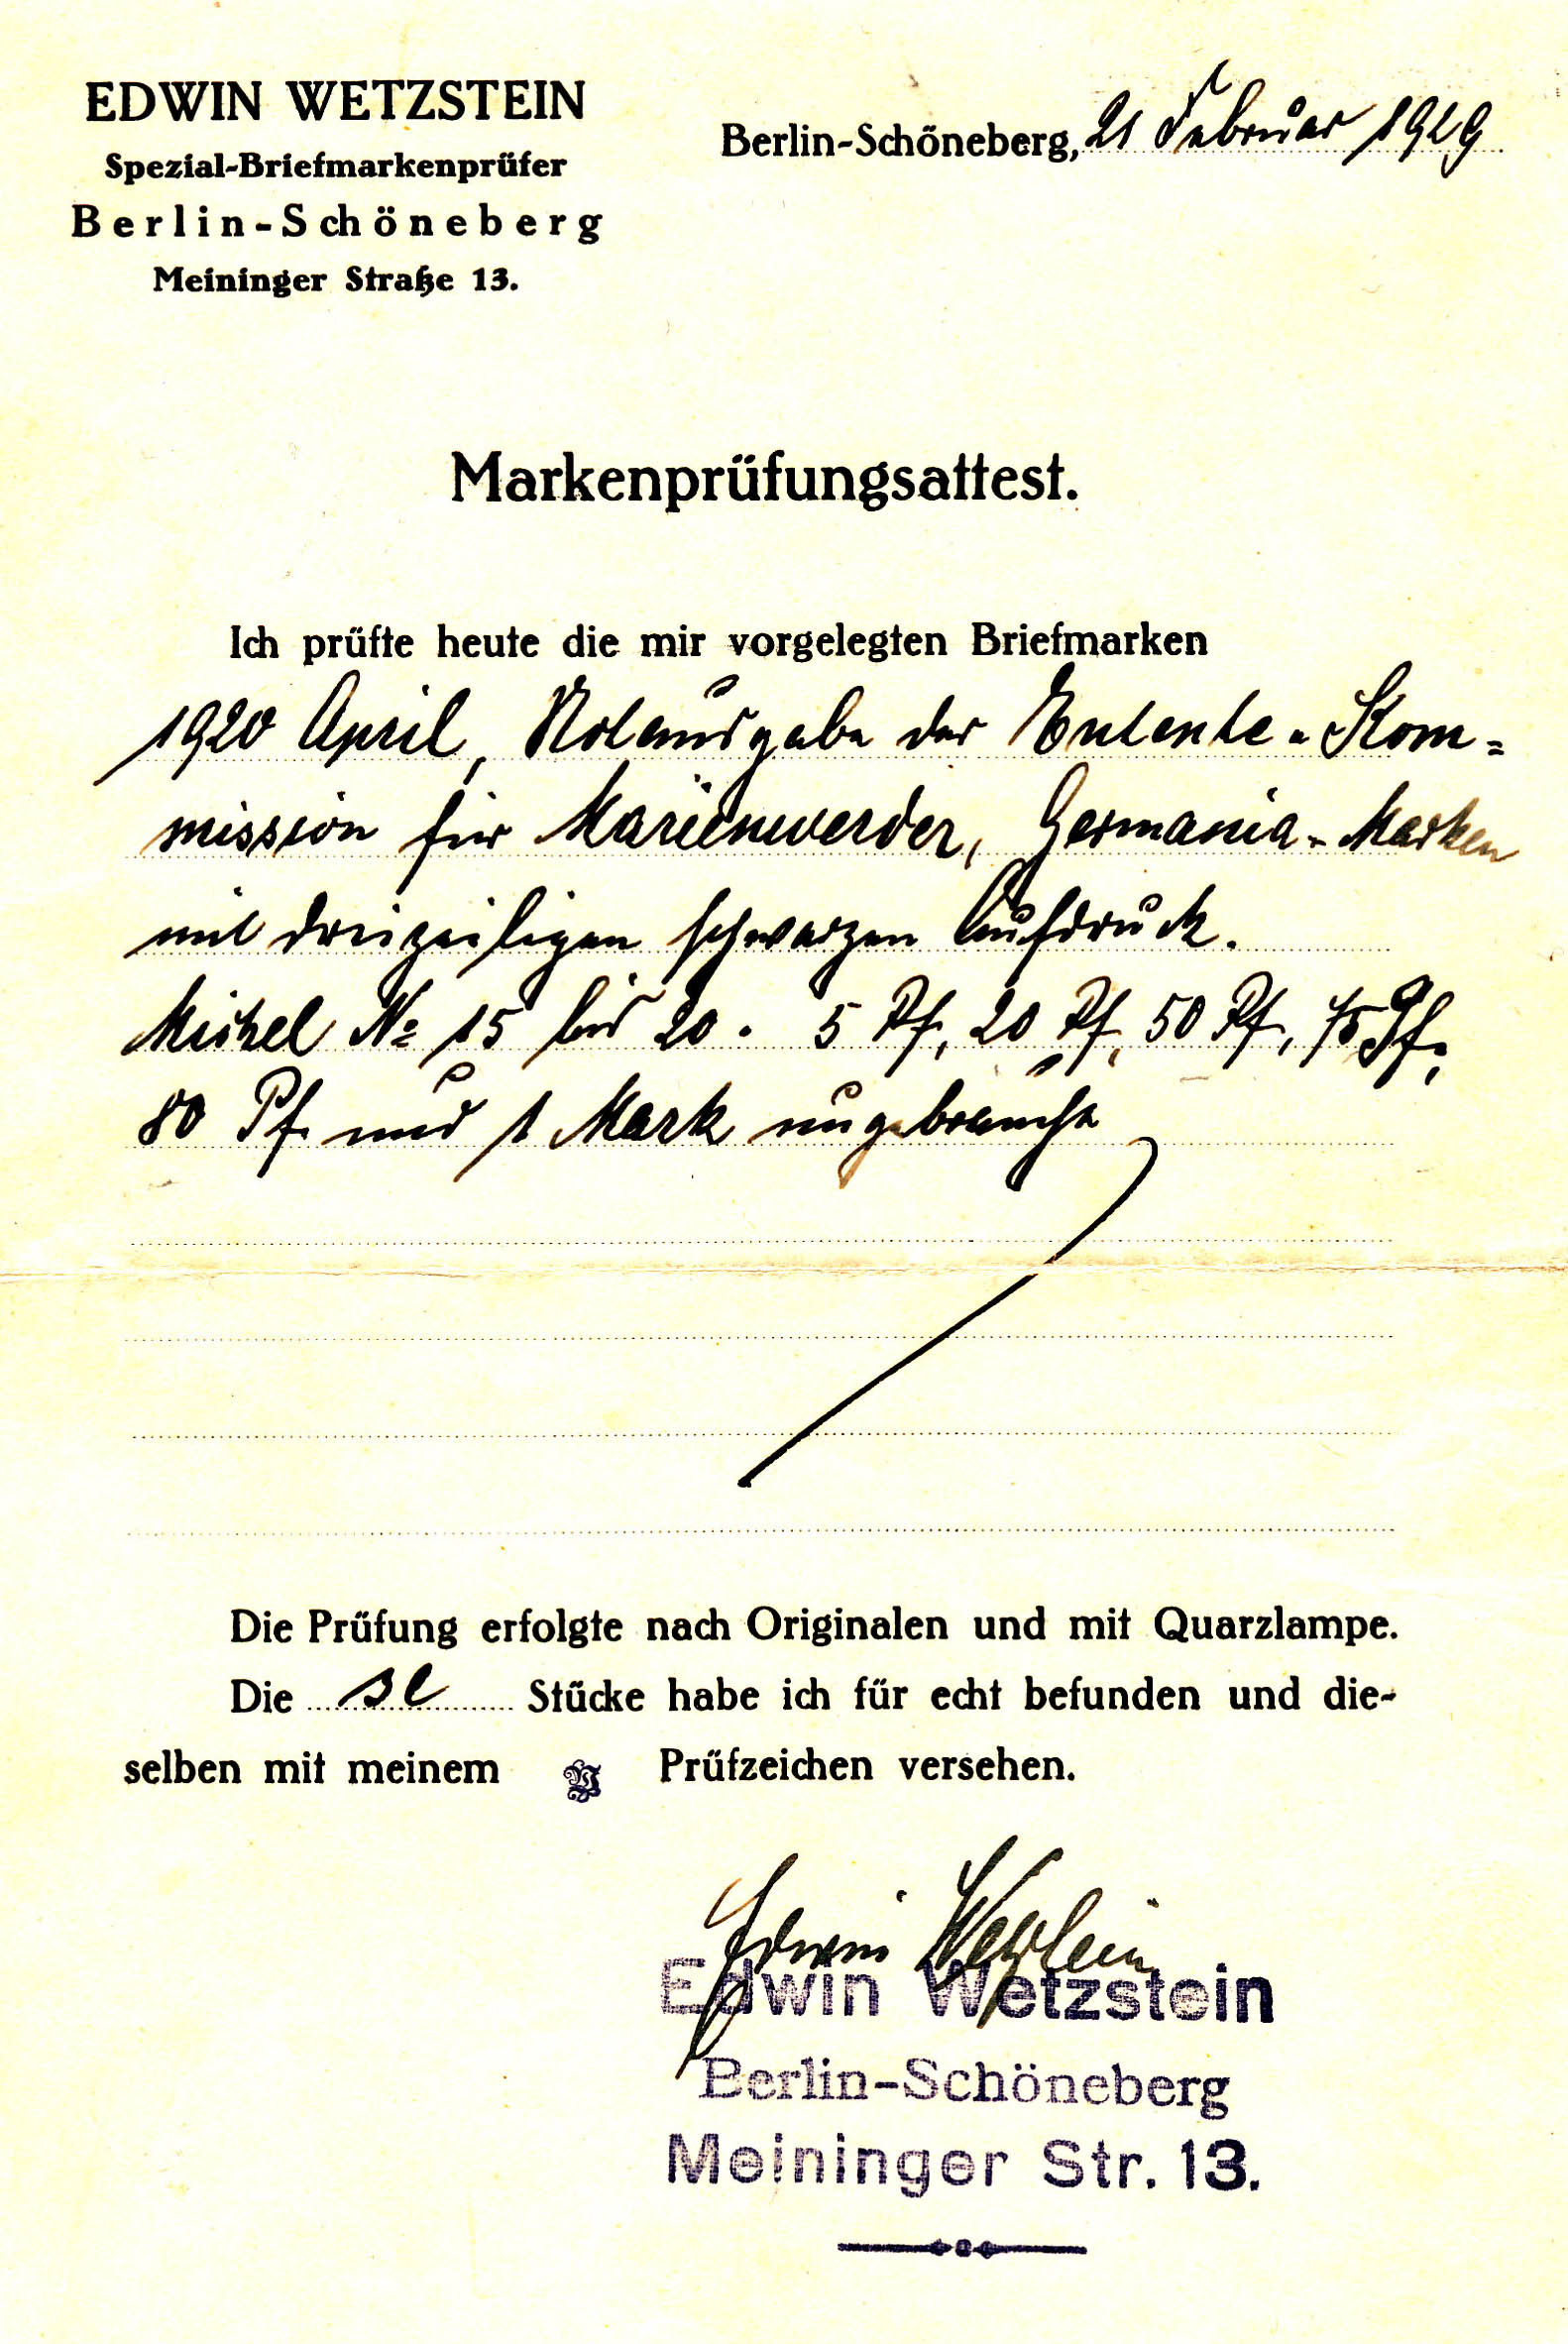 EDWIN WETZSTEIN
Spezial-Briefmarkenprüfer
Berlin-Schöneberg
Meininger Straße 13.
Berlin-Schöneberg, 21 Februar 1929
Markenprüfungsattest.
Ich prüfte heute die mir vorgelegten Briefmarken
1920 April, Notausgabe der Entente-Kom=
mission für Marienwerder, Germania-Marken
mit dreizeiligen schwarzen Aufdruck.
Michel No 15 bis 20. 5 Pf, 20 Pf, 50 Pf, 75 Pf,
80 Pf. und 1 Mark ungebraucht
Die Prüfung erfolgte nach Originalen und mit Quarzlampe.
Die Stücke habe ich für echt befunden und die-
selben mit meinem Prüfzeichen versehen.
Edwin Wetzstein
Edwin Wetzstein
Berlin-Schöneberg
Meininger Str. 13.